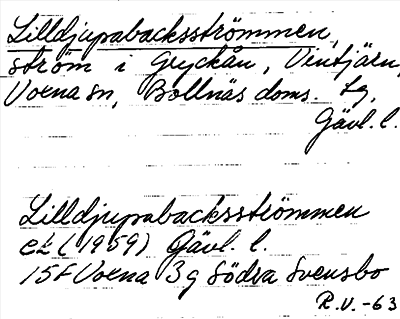 Lilldjupabacksströmmen,
ström i Gryckån, Vintjärn,
Voena sn, Bollnäs doms. tg,
Gävl. l.
Lilldjupabacksströmmen
ek (1959) Gävl. l.
15F Voena 3g Södra Svensbo
R.V. -63